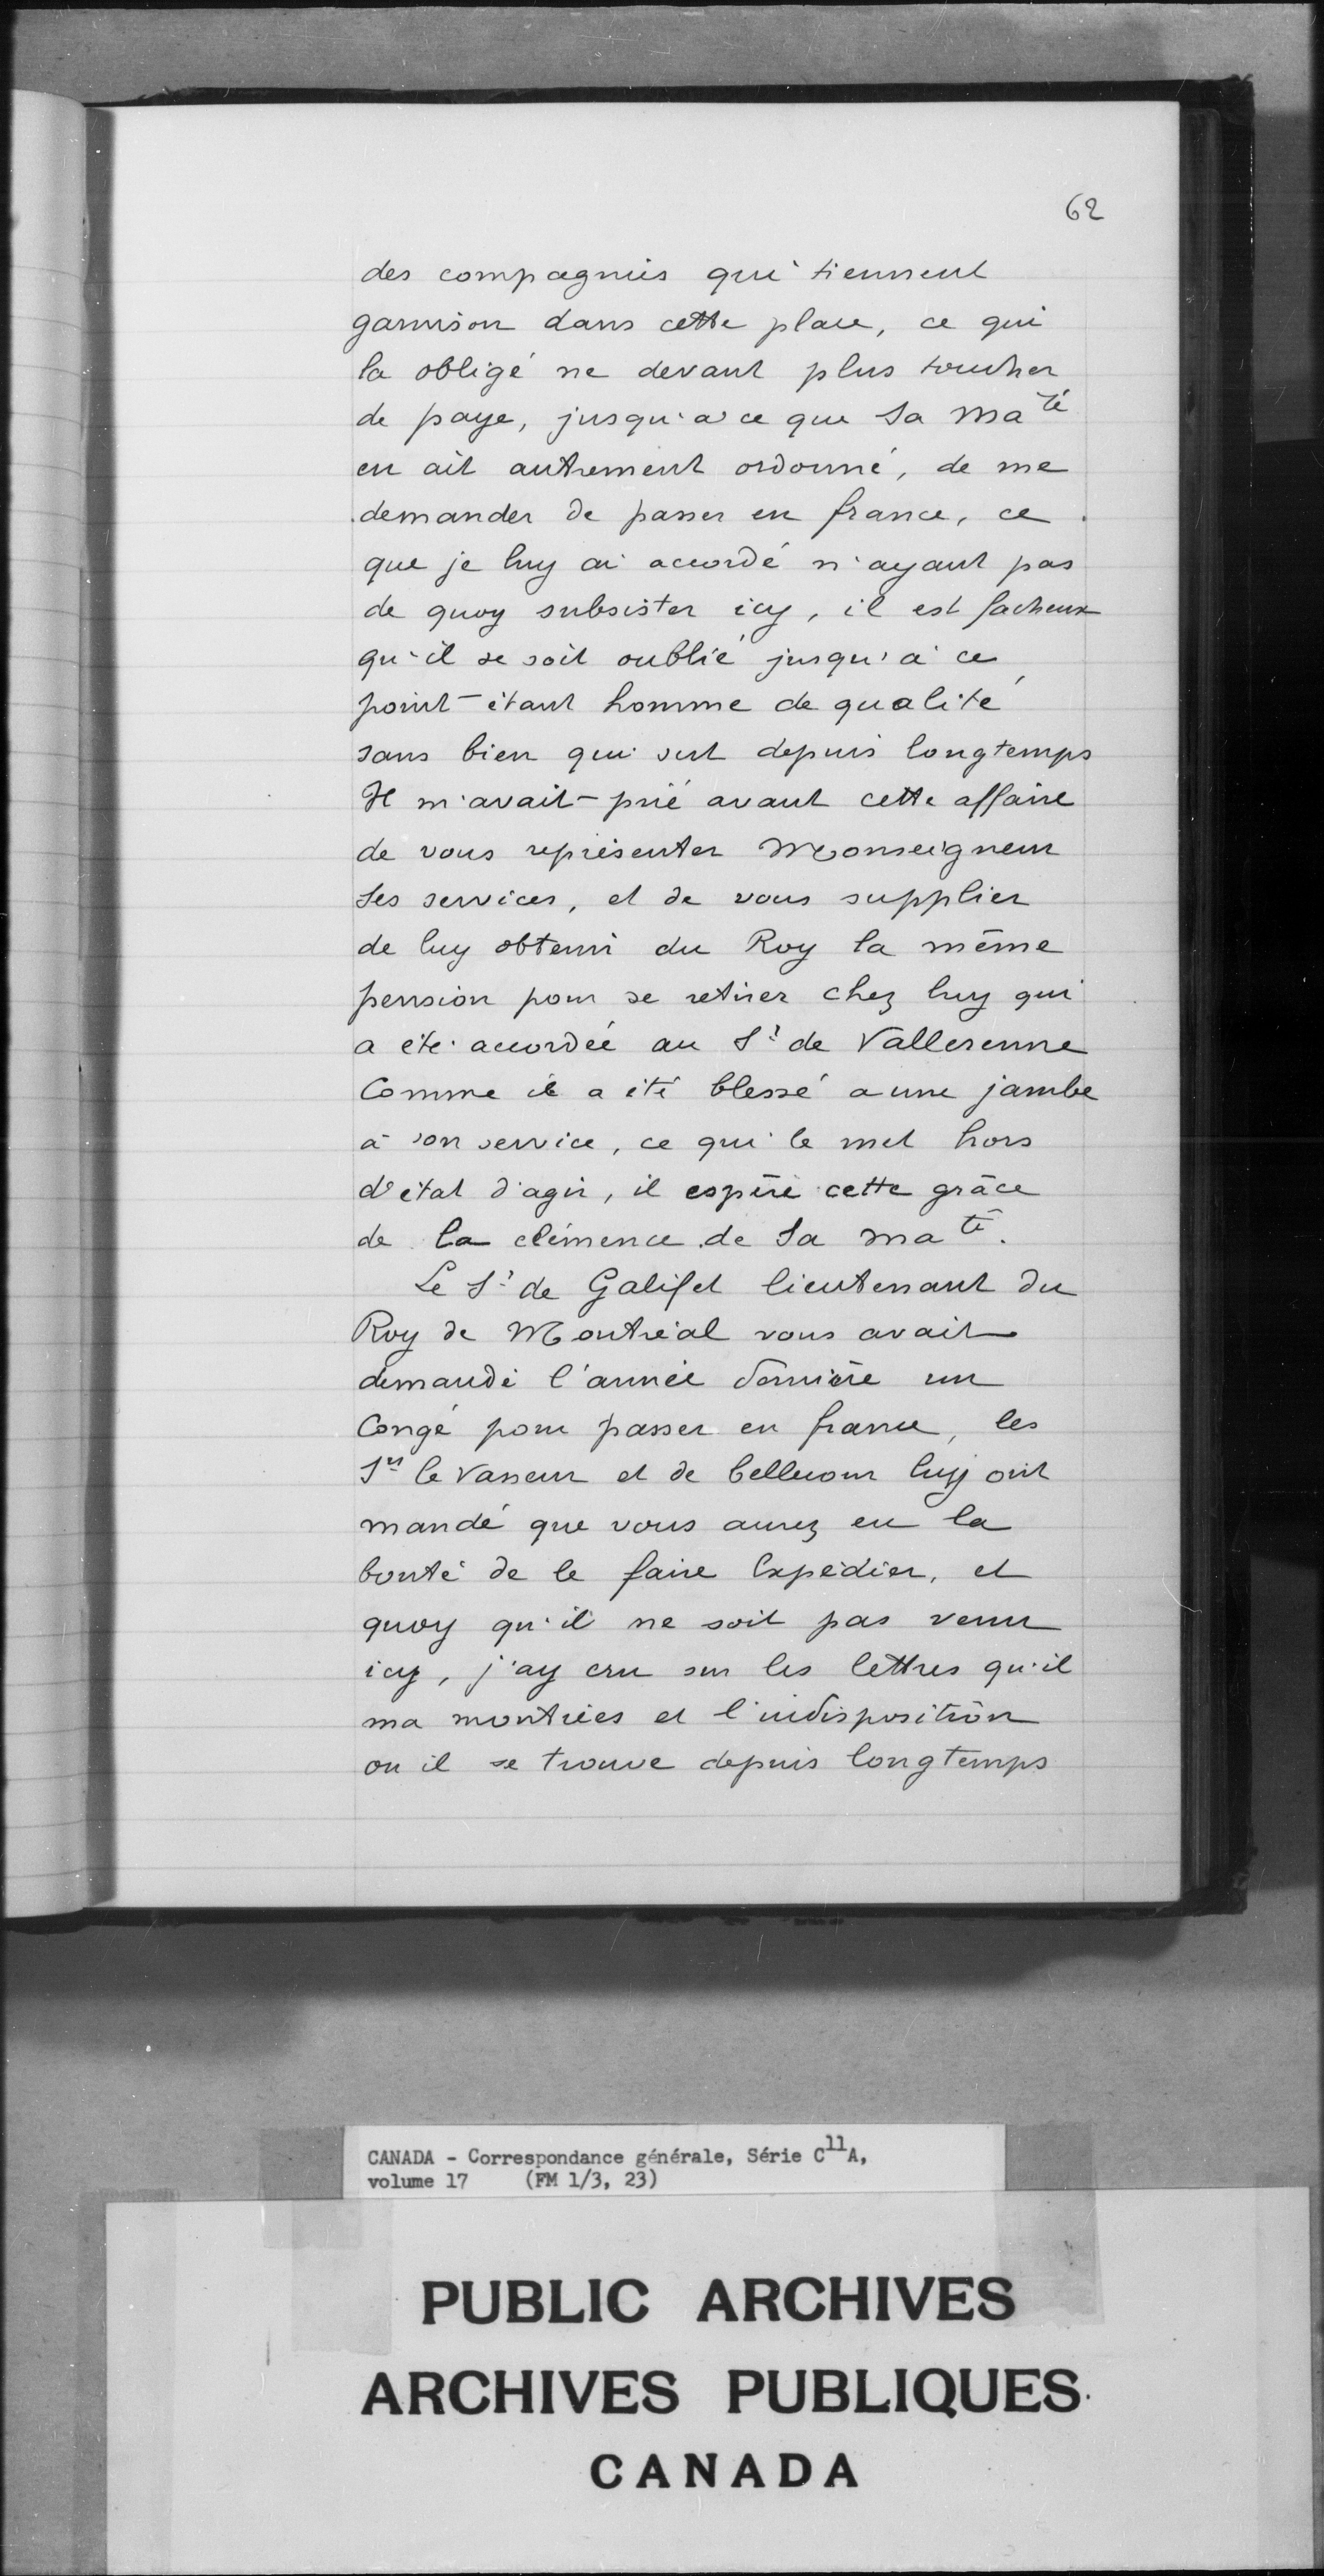 62
des compagnies qui tiennent
garnison dans cette place, ce qui
la obligé ne devant plus toucher
de paye, jusqu'a ce que Sa Maté
en ait autrement ordonné, de me
demander de passer en france, ce
que je luy ai accordé n'ayant pas
de quoy subsister icy, il est facheux
qu'il se soit oublié jusqu'à ce
point étant homme de qualité
sans bien qui sert depuis longtemps
Il m'avait prié avant cette affaire
de vous représenter Monseigneur
Ses services, et de vous supplier
de luy obtenir du Roy la même
pension pour se retirer chez luy qui
a été accordée au Sr de Vallerenne
Comme il a été blessé a une jambe
à son service, ce qui le met hors
d'état d'agir, il espère cette grâce
de la clémence de Sa Maté.
Le Sr de Galifet lieutenant du
Roy de Montréal vous avait
demandé l'année dernière un
Congé pour passer en france, les
Srs le Vasseur et de bellecour luy ont
mandé que vous aurez eu la
bonté de le faire Expédier, et
quoy qu'il ne soit pas venu
icy, j'ay cru sur les lettres qu'il
ma montrées et l'indisposition
ou il se trouve depuis longtemps
CANADA - Correspondance générale, Série C11A,
volume 17 (FM 1/3, 23)
PUBLIC ARCHIVES
ARCHIVES PUBLIQUES
CANADA